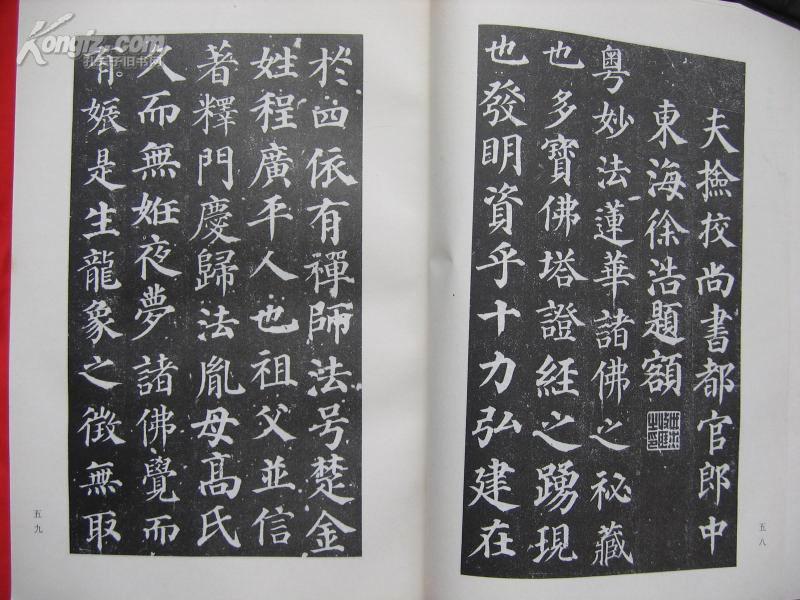 夫撿挍尚書都官郎中
東海徐浩題額
粤妙法蓮華諸佛之秘藏
也多寶佛塔證經之踴現
也發明資乎十力弘建在
五八
於四依有禪師法号楚金
姓程廣平人也祖父並信
著釋門慶歸法胤母髙氏
久而無姙夜夢諸佛覺而
有娠是生龍象之徵無取
五九
Kongfz.com
孔夫子旧书网